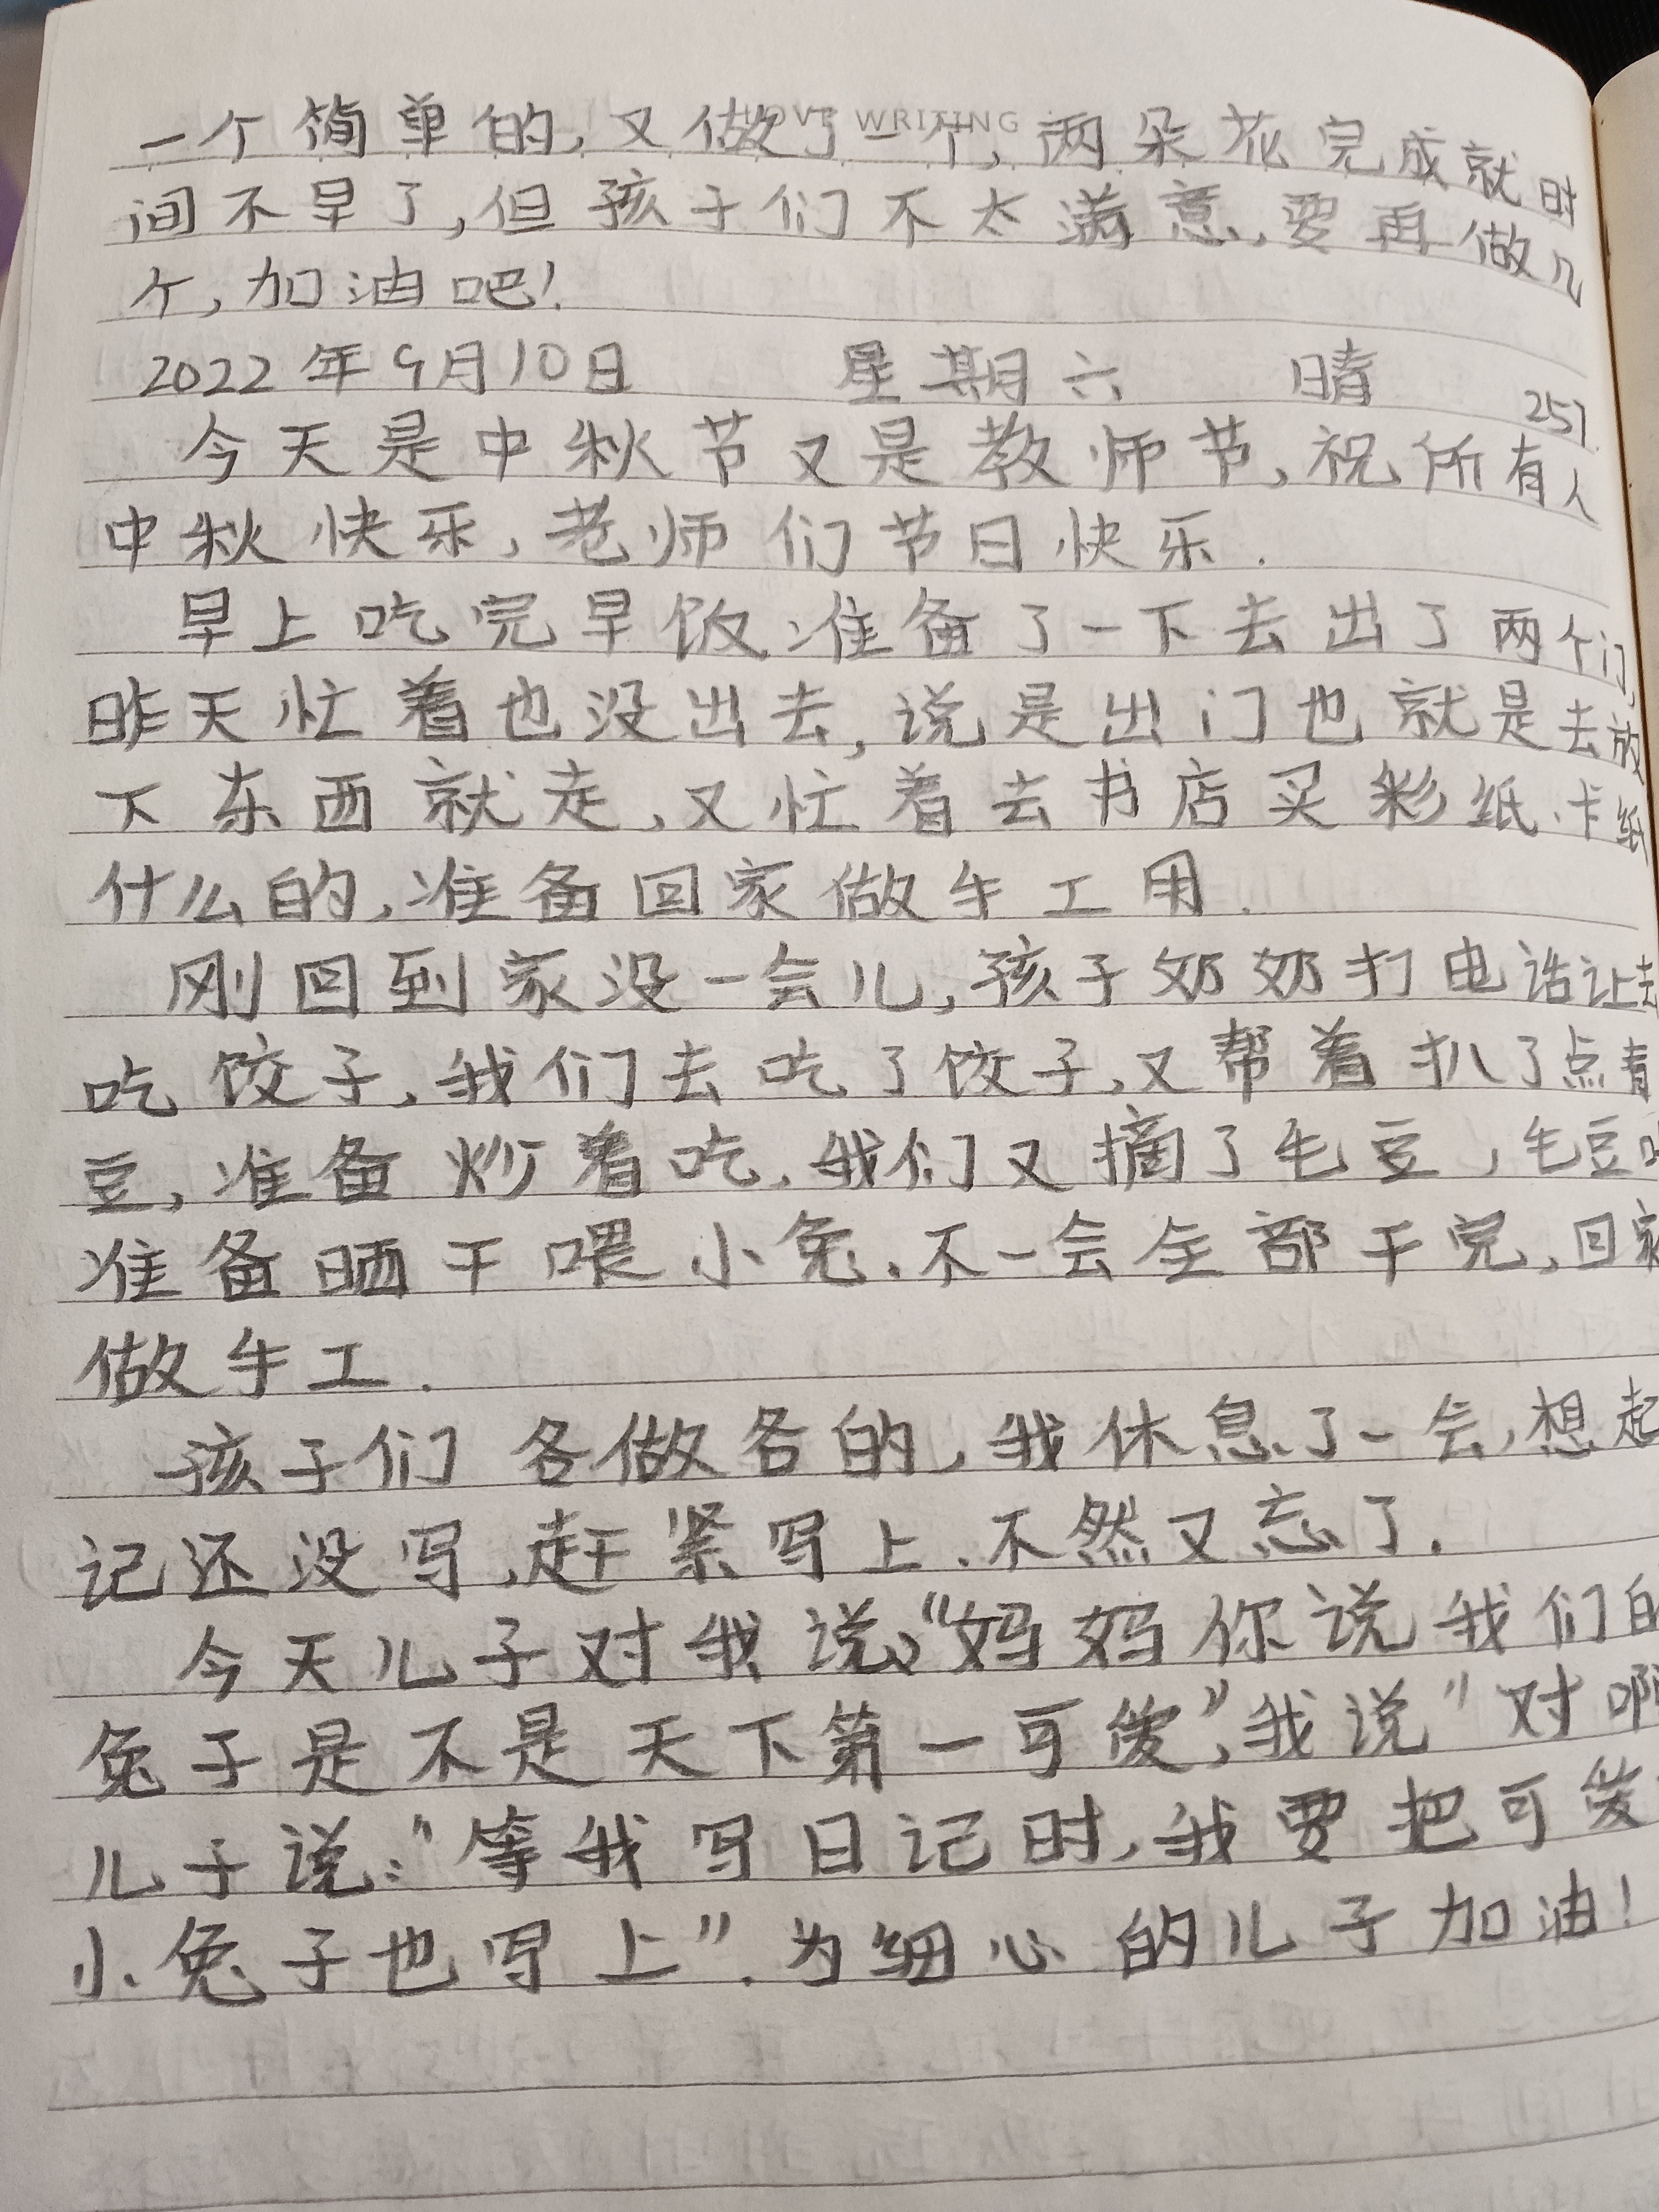 LOVE WRITING
一个简单的,又做了一个,两朵花完成就时
间不早了,但孩子们不太满意,要再做几
个,加油吧!
2022年9月10日 星期六 晴 257
今天是中秋节又是教师节,祝所有人
中秋快乐,老师们节日快乐.
早上吃完早饭准备了一下去出了两个门,
昨天忙着也没出去,说是出门也就是去放
下东西就走,又忙着去书店买彩纸、卡纸
什么的,准备回家做手工用.
刚回到家没一会儿,孩子奶奶打电话让去
吃饺子,我们去吃了饺子,又帮着扒了点青
豆,准备炒着吃.我们又摘了毛豆,毛豆
准备晒干喂小兔.不一会全部干完,回家
做手工.
孩子们各做各的,我休息了一会,想起
记还没写,赶紧写上.不然又忘了.
今天儿子对我说:“妈妈你说我们的
兔子是不是天下第一可爱”,我说"对啊
儿子说:“等我写日记时,我要把可爱
小兔子也写上”.为细心的儿子加油!